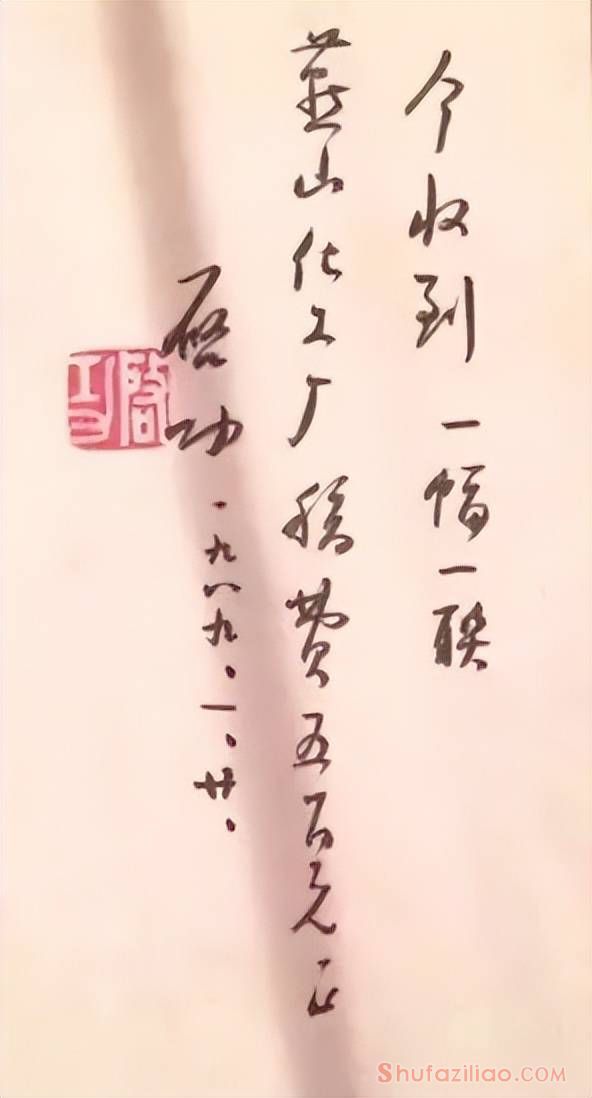 今收到一幅一联
燕山化工厂稿费五百元正
启功 一九八九.一.廿.
启功
Shufaziliao.COM